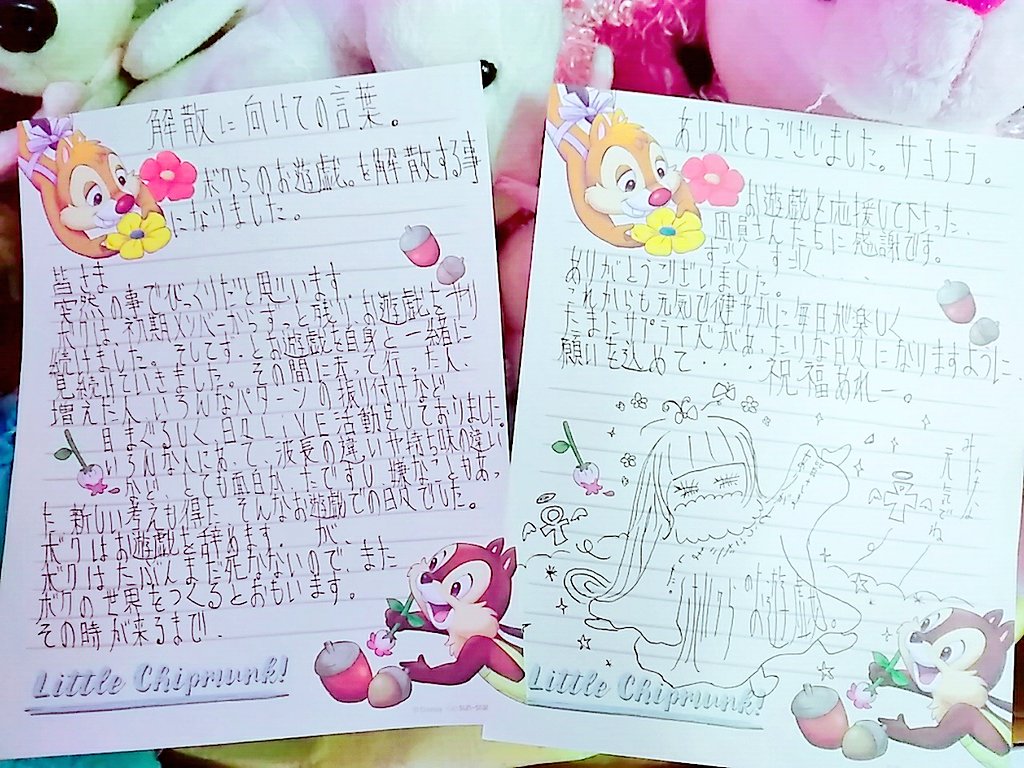 解散に向けての言葉。
ボクらのお遊戯。を解散する事
になりました。
皆さま
突然の事でびっくりだと思います
ボクは、初期メンバーからずっと残り、お遊戯をやり
続けました。そしてずっとお遊戯を自身と一緒に
見続けていきました。その間に去って行った人、
増えた人、いろんなパターンの振り付けなど
目まぐるしく日々LIVE活動をしておりました。
いろんな人にあって、波長の違いや持ち味の違い
など、とても面白かったですし、嫌なこともあっ
た 新しい考えも得た そんなお遊戯での日々でした。
ボクはお遊戯を辞めます。が、
ボクはたぶんまだ死がないので、また
ボクの世界をつくるとおもいます。
その時が来るまで、
Little Chipmunk!
ありがとうございました。サヨナラ。
お遊戯を応援して下さった、
団員さんたちに感謝です。
ずっとずっと
ありがとうございました。
これからも元気で健やかに毎日が楽しく
たまにサプライズがあったりな日々になりますように、
願いを込めて・・・祝福あれー。
みんな
元気でね
ボクらのお遊戯。
Little Chipmunk!